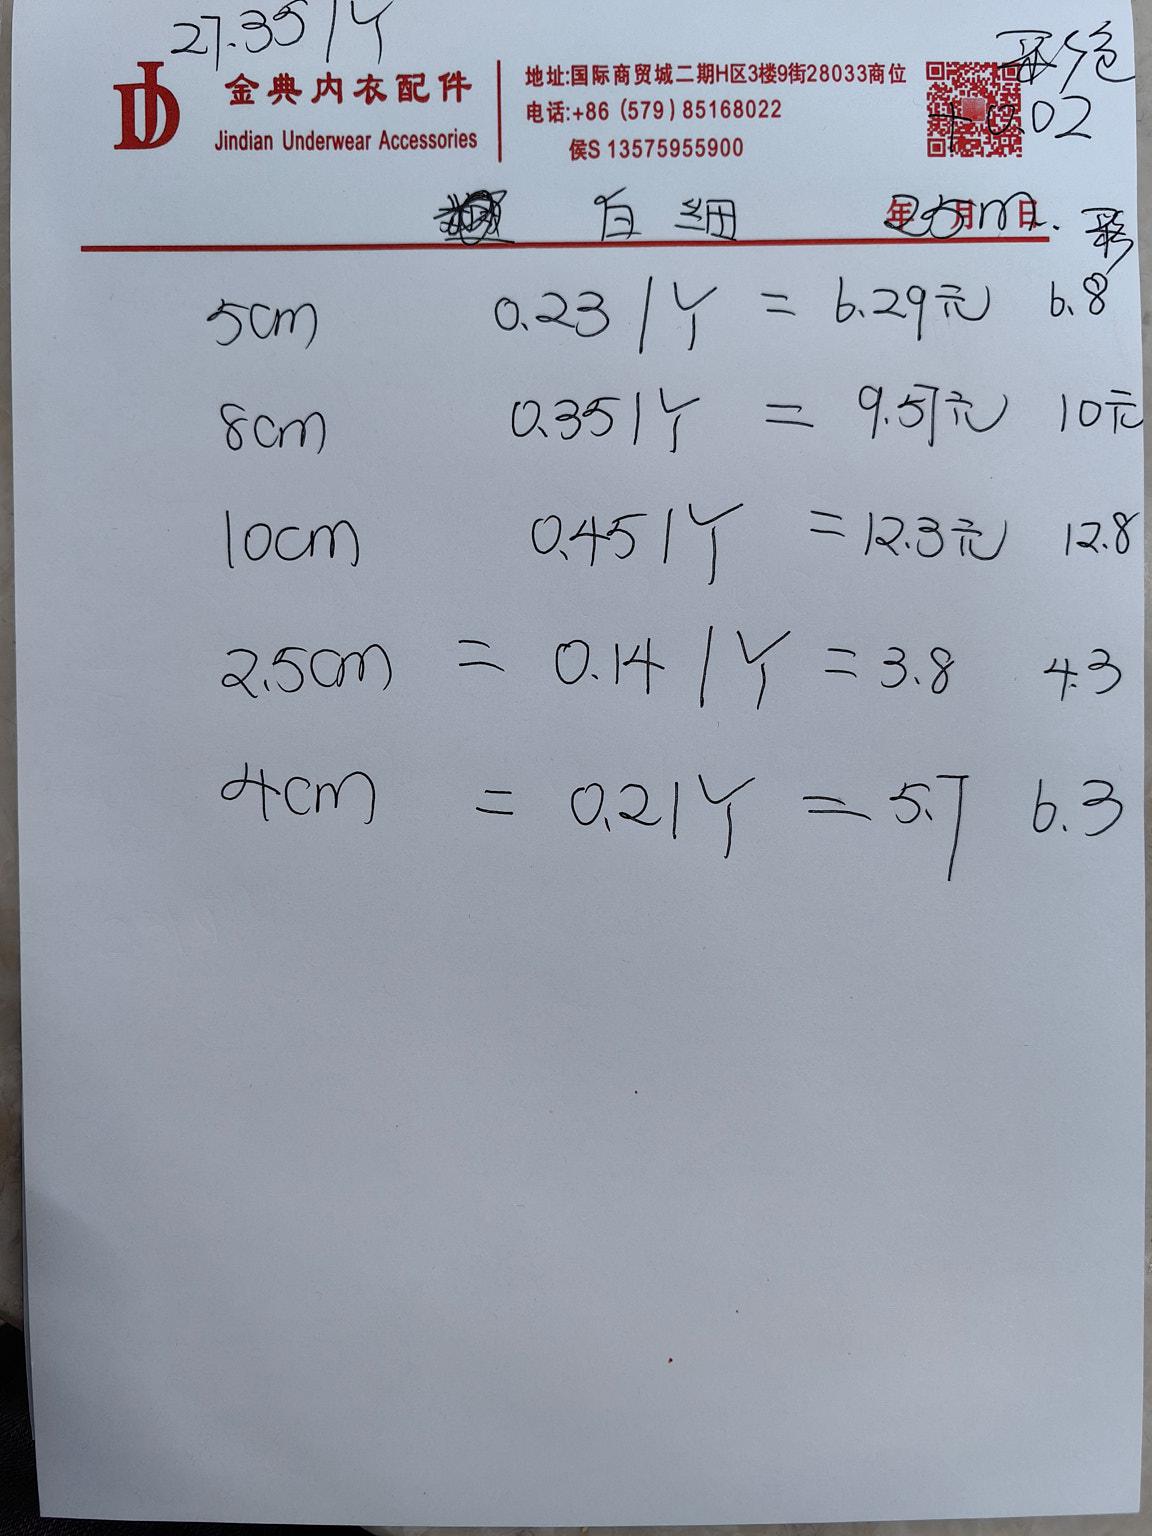 27.35/Y
金典内衣配件
Jindian Underwear Accessories
地址:国际商贸城二期H区3楼9街28033商位
电话:+86 (579) 85168022
侯S 13575955900
彩色
+0.02
年 月 日
白 细 25m. 彩
5cm 0.23/Y = 6.29元 6.8
8cm 0.35/Y = 9.57元 10元
10cm 0.45/Y = 12.3元 12.8
2.5cm = 0.14/Y = 3.8 4.3
4cm = 0.21/Y = 5.7 6.3